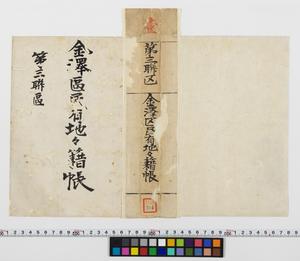 金澤區民有地々籍帳
第三聯區
壹
第三聯区
金澤区民有地々籍帳